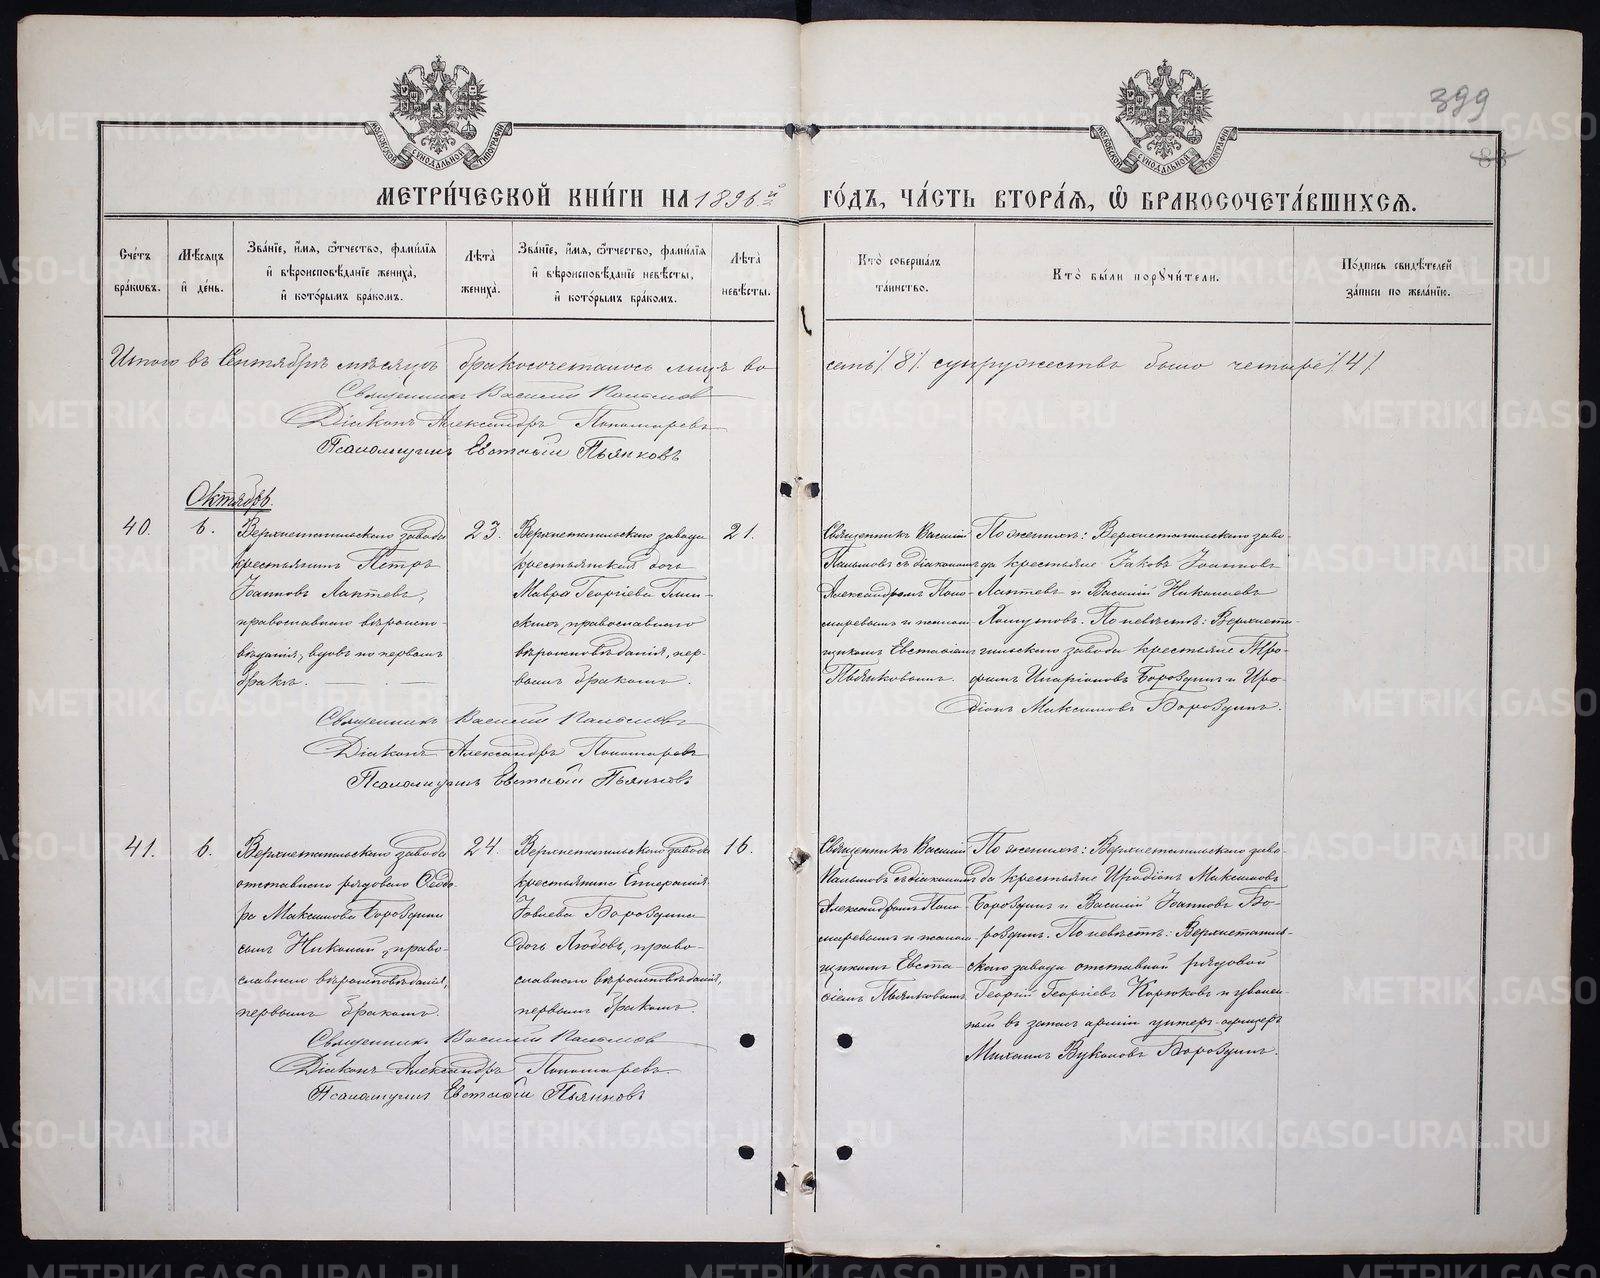 399
83
МОСКОВСКОЙ СѴНОДАЛЬНОЙ ТИПОГРАФІИ
МОСКОВСКОЙ СѴНОДАЛЬНОЙ ТИПОГРАФІИ
МЕТРИ́ЧЕСКОЙ КНИ́ГИ НА 1896й ГО́ДЪ, ЧА́СТЬ ВТОРА́Ѧ, Ѽ БРАКОСОЧЕТА́ВШИХСѦ.
Сче́тъ бра́кѡвъ.
Мѣ́сяцъ и҆ де́нь.
Зва́нїе, и҆́мѧ, ѻ҆́тчество, фами́лїѧ и҆ вѣроисповѣ́данїе жениха̀, и҆ кото́рымъ бра́комъ.
Лѣ́та жениха̀.
Зва́нїе, и҆́мѧ, ѻ҆́тчество, фами́лїѧ и҆ вѣроисповѣ́данїе невѣ́сты, и҆ кото́рымъ бра́комъ.
Лѣ́та невѣ́сты.
Кто̀ соверша́лъ та́инство.
Кто̀ бы́ли порꙋчи́тели.
По́дпись свидѣ́телей за́писи по жела́нїю.
Итого въ Сентябрѣ мѣсяцѣ бракосочеталось лицъ восемь /8/ супружествъ было четыре /4/
Священникъ Василій Пальмовъ
Діаконъ Александръ Пономаревъ
Псаломщикъ Евстафій Пьянковъ
Октябрь.
40.
6.
Верхнетагильскаго завода
крестьянинъ Петръ
Іоанновъ Лаптевъ,
православнаго вѣроиспо-
вѣданія, вдовъ по первомъ
бракѣ.
23.
Верхнетагильскаго завода
крестьянская дочь
Мавра Георгіева
православнаго
вѣроисповѣданія, пер-
вымъ бракомъ.
21.
Священникъ Василій
Пальмовъ съ діакономъ
Александромъ Поно-
маревымъ и псалом-
щикомъ Евстафіемъ
Пьянковымъ.
По женихѣ: Верхнетагильскаго заво-
да крестьяне Іаковъ Іоанновъ
Лаптевъ и Василій Николаевъ
Хомутовъ. По невѣстѣ: Верхнета-
гильскаго завода крестьяне Тро-
фимъ Иларіоновъ Бороздинъ и Иро-
діонъ Максимовъ Бороздинъ.
Священникъ Василій Пальмовъ
Діаконъ Александръ Пономаревъ
Псаломщикъ Евстафій Пьянковъ
41.
6.
Верхнетагильскаго завода
отставного рядового Ѳеодо-
ра Максимова Бороздина
сынъ Николай, право-
славнаго вѣроисповѣданія,
первымъ бракомъ.
24.
Верхнетагильскаго завода
крестьянина
Іовлева Бороздина
дочь Любовь, право-
славнаго вѣроисповѣданія,
первымъ бракомъ.
16.
Священникъ Василій
Пальмовъ съ діакономъ
Александромъ Поно-
маревымъ и псалом-
щикомъ Евста-
фіемъ Пьянковымъ.
По женихѣ: Верхнетагильскаго заво-
да крестьяне Иродіонъ Максимовъ
Бороздинъ и Василій Іоанновъ Бо-
роздинъ. По невѣстѣ: Верхнетагиль-
скаго завода отставной рядовой
Георгій Георгіевъ Корюковъ и уволен-
ный въ запасъ арміи унтеръ-офицеръ
Михаилъ Вуколовъ Бороздинъ.
Священникъ Василій Пальмовъ
Діаконъ Александръ Пономаревъ.
Псаломщикъ Евстафій Пьянковъ
METRIKI.GASO-URAL.RU